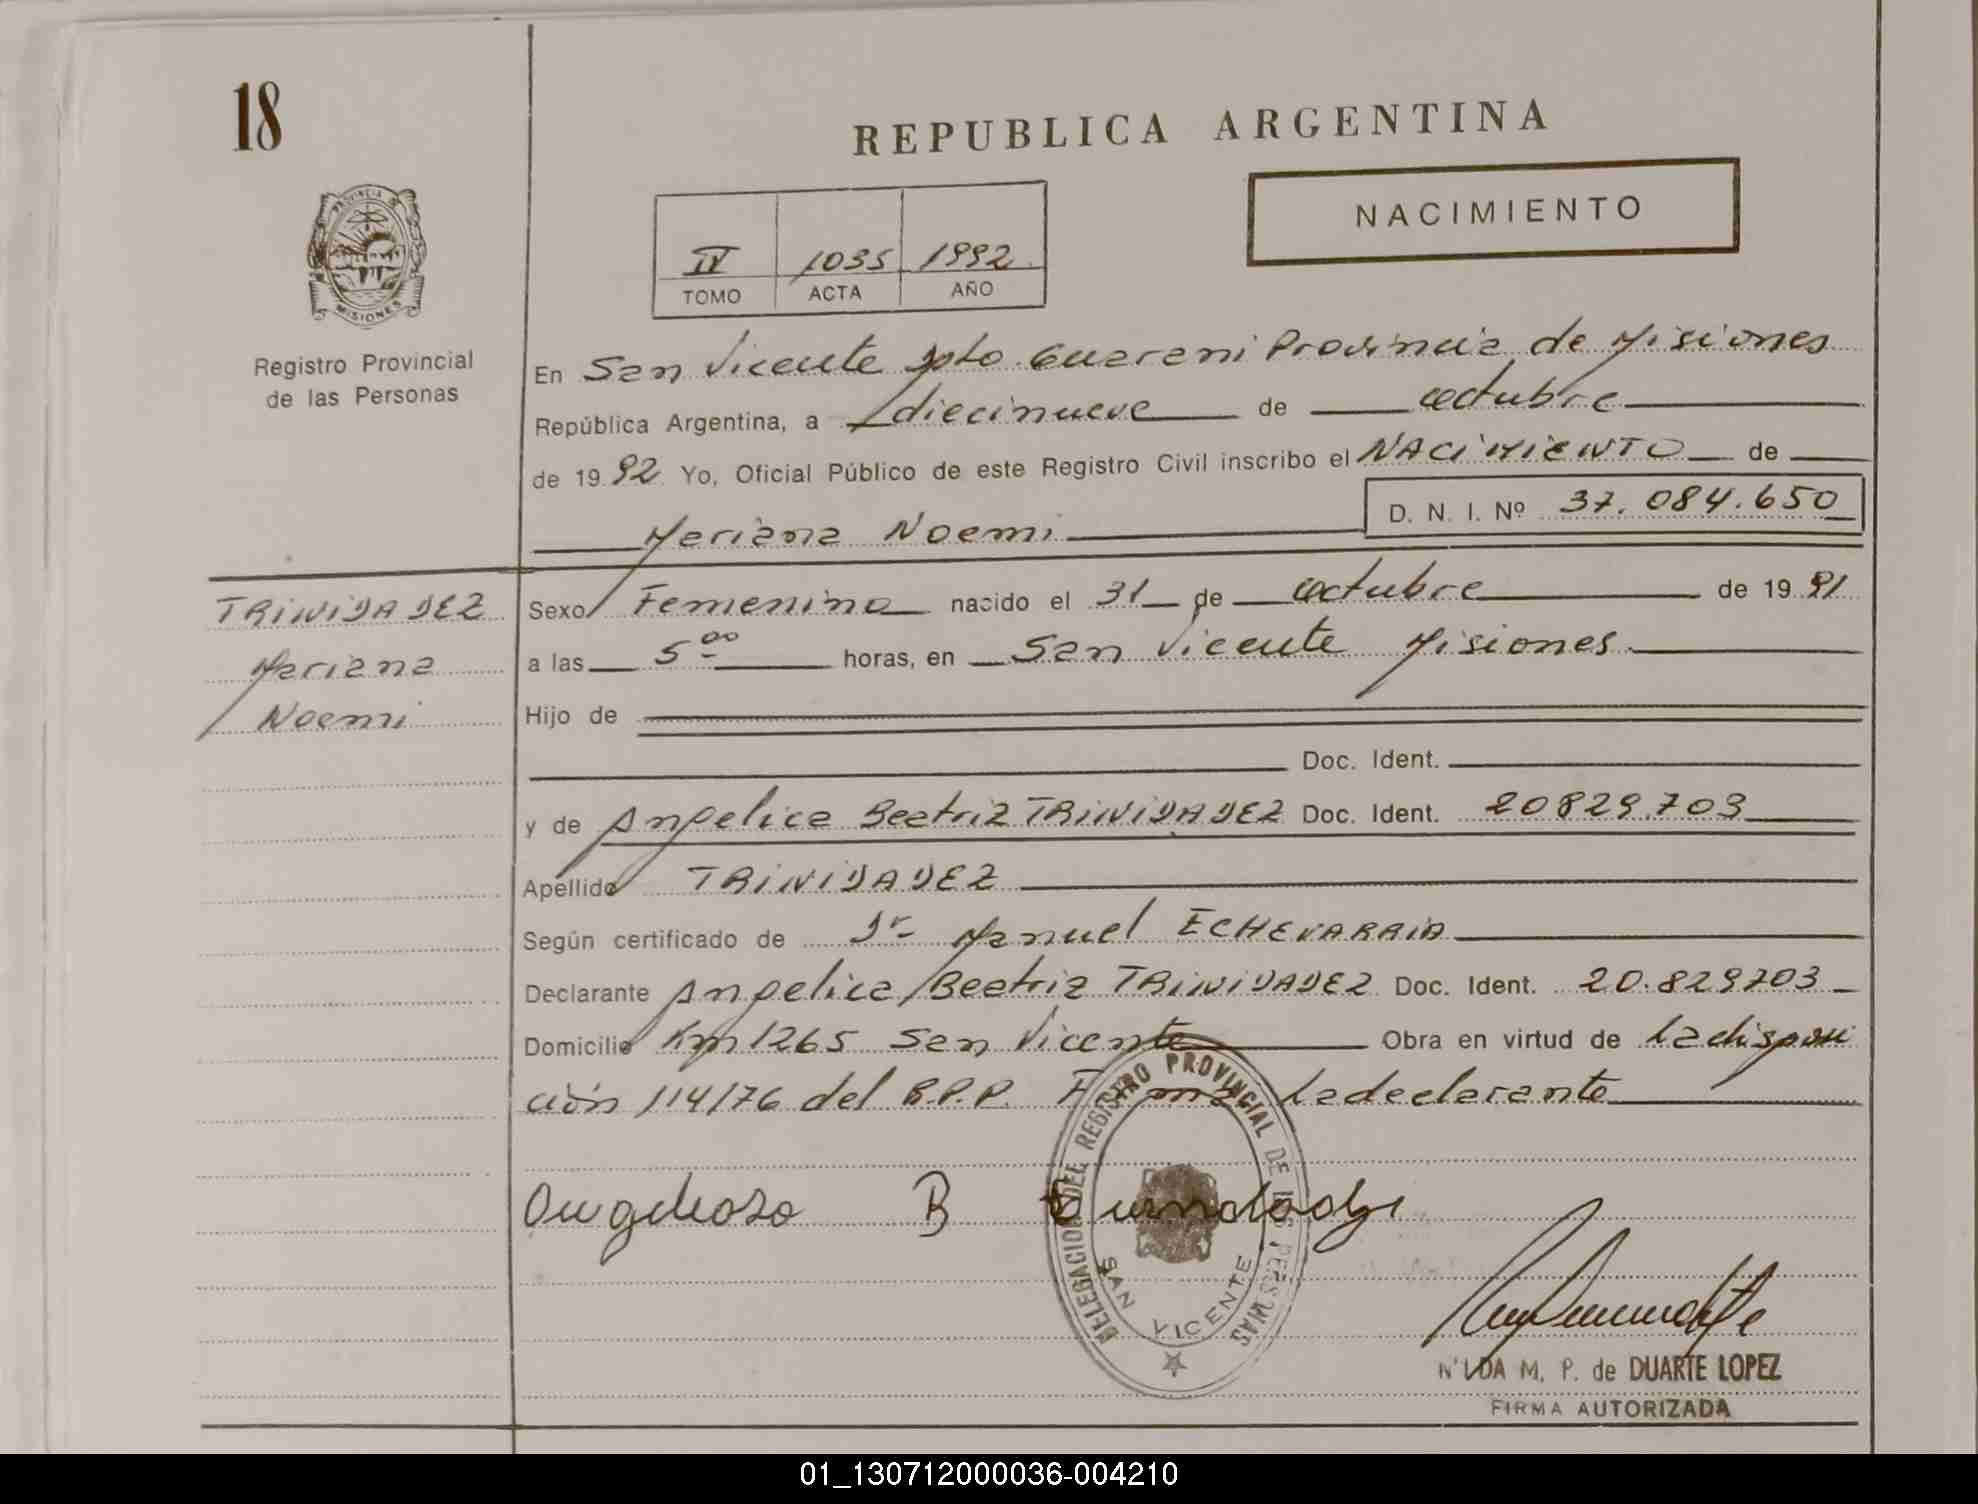 18
REPUBLICA ARGENTINA
PROVINCIA DE
MISIONES
NACIMIENTO
IV 1035 1992
TOMO ACTA AÑO
Registro Provincial
de las Personas
En San Vicente Dpto. Guarani Provincia de Misiones
República Argentina, a diecinueve de octubre
de 1992 Yo, Oficial Público de este Registro Civil inscribo el NACIMIENTO de
D. N. I. Nº 37.084.650
Mariana Noemi
TRINIDADEZ
Mariana
Noemi
Sexo Femenino nacido el 31 de octubre de 1991
a las 5 00 horas, en San Vicente Misiones
Hijo de
Doc. Ident.
y de Angelica Beatriz TRINIDADEZ Doc. Ident. 20829.703
Apellido TRINIDADEZ
Según certificado de Dr Manuel ECHEVARRIA
Declarante Angelica Beatriz TRINIDADEZ Doc. Ident. 20.829703
Domicilio Km 1265 San Vicente Obra en virtud de la disposi
ción 114/76 del R.P.P. Firma la declarante
B
DELEGACION DEL REGISTRO PROVINCIAL DE LAS PERSONAS
SAN VICENTE
NILDA M. P. de DUARTE LOPEZ
FIRMA AUTORIZADA
01_130712000036-004210